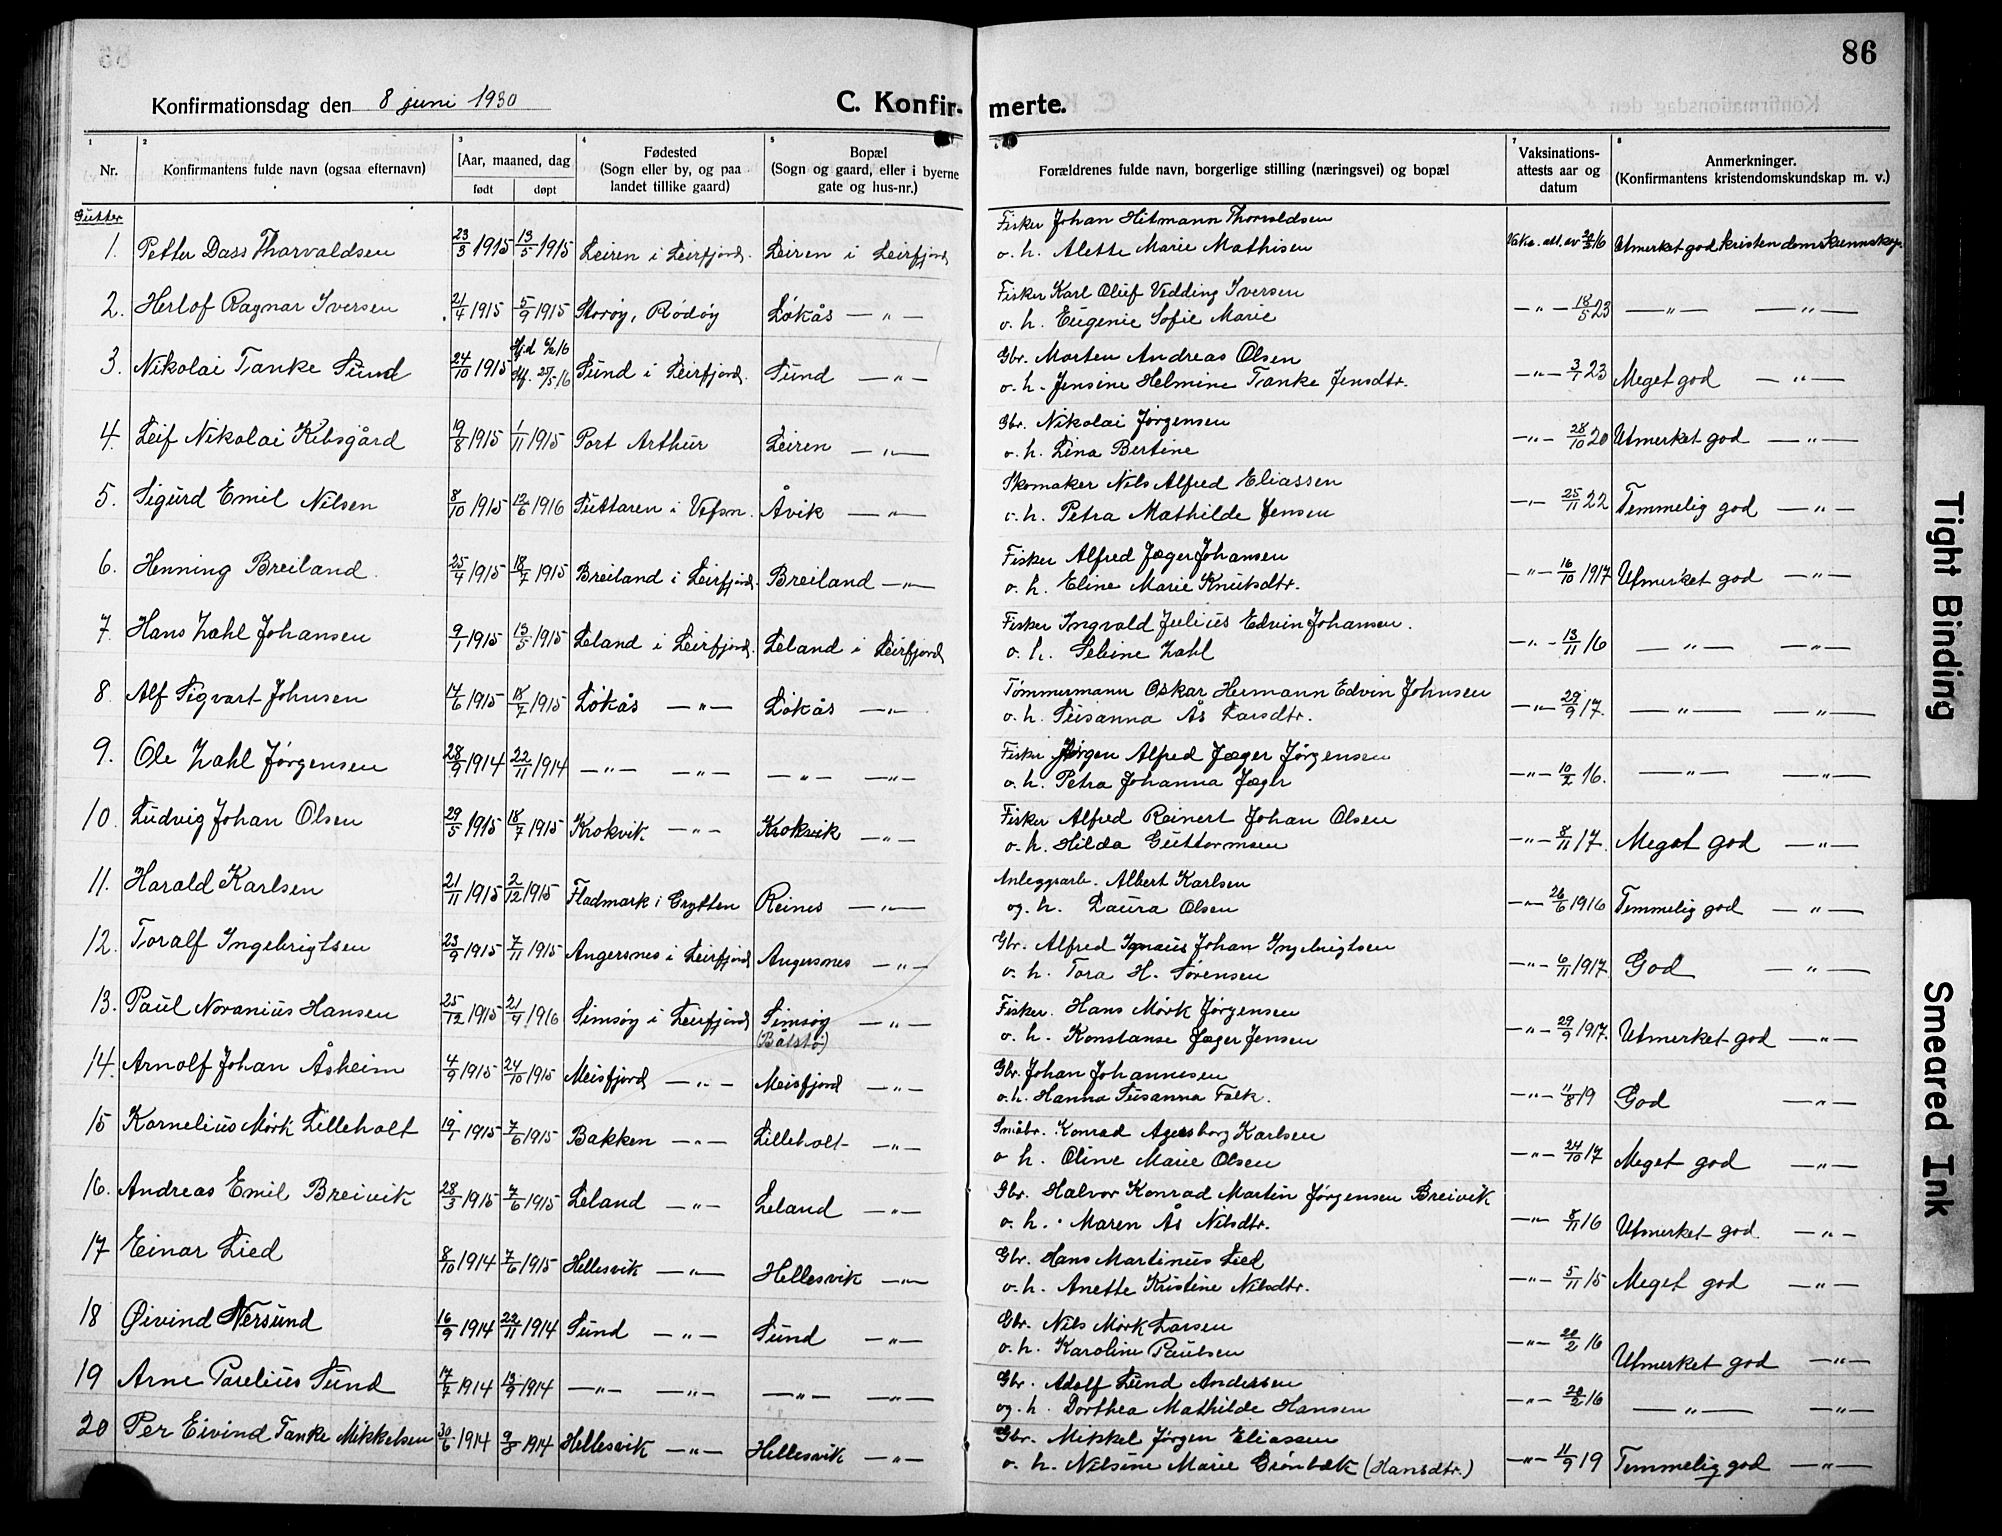 86
Konfirmationsdag den 8 juni 1930
C. Konfir- merte.
1 2 3 4 5 7 8
Nr.
Konfirmantens fulde navn (ogsaa efternavn)
Aar, maaned, dag
født døpt
Fødested
(Sogn eller by, og paa
landet tillike gaard)
Bopæl
(Sogn og gaard, eller i byerne
gate og hus-nr.)
Forældrenes fulde navn, borgerlige stilling (næringsvei) og bopæl
Vaksinations-
attests aar og
datum
Anmerkninger.
(Konfirmantens kristendomskundskap m. v.)
Gutter
1. Petter Dass Thorvaldsen 23/3 1915 13/5 1915 Leiren i Leirfjord. Leiren i Leirfjord
Fisker Johan Hitmann Thorvaldsen
o. h. Alette Marie Mathisen
Utmerket god kristendomskunnskap.
2. Herlof Ragnar Iversen 21/4 1915 5/9 1915 Storøy, Rødøy Løkås — " —
Fisker Karl Oluf Vedding Iversen
o. h. Eugenie Sofie Marie
— " — 18/5 23 — " — — " —
3. Nikolai Tanke Sund 24/10 1915 Sund i Leirfjord. Sund — " —
Gbr. Morten Andreas Olsen
o. h. Jensine Helmine Tanke Jensdtr.
— " — 3/1 23 Meget god — " —
4. Leif Nikolai Kibsgård 19/8 1915 1/11 1915 Port Arthur Leiren — " —
Gbr. Nikolai Jørgensen
o. h. Lina Bertine
— " — 28/10 20 Utmerket god — " —
5. Sigurd Emil Nilsen 8/10 1915 12/6 1916 Luttaren i Vefsn. Åvik — " —
Skomaker Nils Alfred Eliassen
o. h. Petra Mathilde Jensen
— " — 25/11 22 Temmelig god — " —
6. Henning Breiland 25/4 1915 18/7 1915 Breiland i Leirfjord. Breiland — " —
Fisker Alfred Jæger Johansen
o. h. Eline Marie Knutsdtr.
— " — 16/10 1917 Utmerket god — " —
7. Hans Zahl Johansen 9/1 1915 13/5 1915 Leland i Leirfjord. Leland i Leirfjord
Fisker Ingvald Julius Edvin Johansen.
o. h. Seline Zahl
— " — 13/11 16 — " — — " —
8 Alf Sigvart Johnsen 14/6 1915 18/7 1915 Løkås — " — Løkås — " —
Tømmermann Oskar Hermann Edvin Johnsen
o. h. Susanna Ås Larsdtr.
— " — 29/9 17. — " — — " —
9. Ole Zahl Jørgensen 28/9 1914 22/11 1914 — " — — " — — " — — " —
Fisker Jørgen Alfred Jæger Jørgensen
o. h. Petra Johanna Jæger
— " — 10/2 16. — " — — " —
10. Ludvig Johan Olsen 29/5 1915 18/7 1915 Krokvik — " — Krokvik — " —
Fisker Alfred Reinert Johan Olsen
o. h. Hilda Guttormsen
— " — 8/11 17. Meget god — " —
11. Harald Karlsen 21/11 1915 2/12 1915 Fladmark i Grytten Reines — " —
Anleggsarb. Albert Karlsen
og. h. Laura Olsen
— " — 26/6 1916 Temmelig god — " —
12. Toralf Ingebrigtsen 23/9 1915 7/11 1915 Angersnes i Leirfjord Angersnes — " —
Gbr. Alfred Ignaus Johan Ingebrigtsen
o. h. Tora H. Sørensen
— " — 6/11 1917. God — " —
13. Paul Noranius Hansen 25/12 1915 21/4 1916 Simsøy i Leirfjord Simsøy — " —
(Båtstø)
Fisker. Hans Mørk Jørgensen
o. h. Konstanse Jæger Jensen
— " — 29/9 1917. Utmerket god — " —
14. Arnolf Johan Åsheim 4/9 1915 24/10 1915 Meisfjord — " — Meisfjord — " —
Gbr. Johan Johannesen
o. h. Hanna Susanna Falk.
— " — 11/8 19 God — " —
15 Kornelius Mørk Lilleholt 19/1 1915 7/6 1915 Bakken — " — Lilleholt — " —
Småbr. Konrad Agersborg Karlsen
o h. Oline Marie Olsen
— " — 24/10 17 Meget god — " —
16. Andreas Emil Breivik 28/3 1915 7/6 1915 Leland — " — Leland — " —
Gbr. Halvor Konrad Martin Jørgensen Breivik
o. h. Maren Ås Nilsdtr.
— " — 8/11 16 Utmerket god — " —
17 Einar Lied 8/10 1914 7/6 1915 Hellesvik — " — Hellesvik — " —
Gbr. Hans Martinus Lied
o. h. Anette Kristine Nilsdtr.
— " — 5/11 15 Meget god — " —
18 Øivind Nersund 16/9 1914 22/11 1914 Sund — " — Sund — " —
Gbr. Nils Mørk Larsen
o. h. Karoline Paulsen
— " — 22/2 16 Utmerket god — " —
19 Arne Parelius Sund 17/7 1914 13/9 1914 — " — — " — — " — — " —
Gbr. Adolf Lund Andersen
og. h. Dorthea Mathilde Hansen
— " — 22/2 16 — " — — " —
20 Per Eivind Tanke Mikkelsen 30/6 1914 9/8 1914 Hellesvik — " — Hellesvik — " —
Gbr. Mikkel Jørgen Eliassen
o. h. Nilsine Marie Grønbæk (Hansdtr.)
— " — 11/9 19 Temmelig god — " —
Tight Binding
Smeared Ink